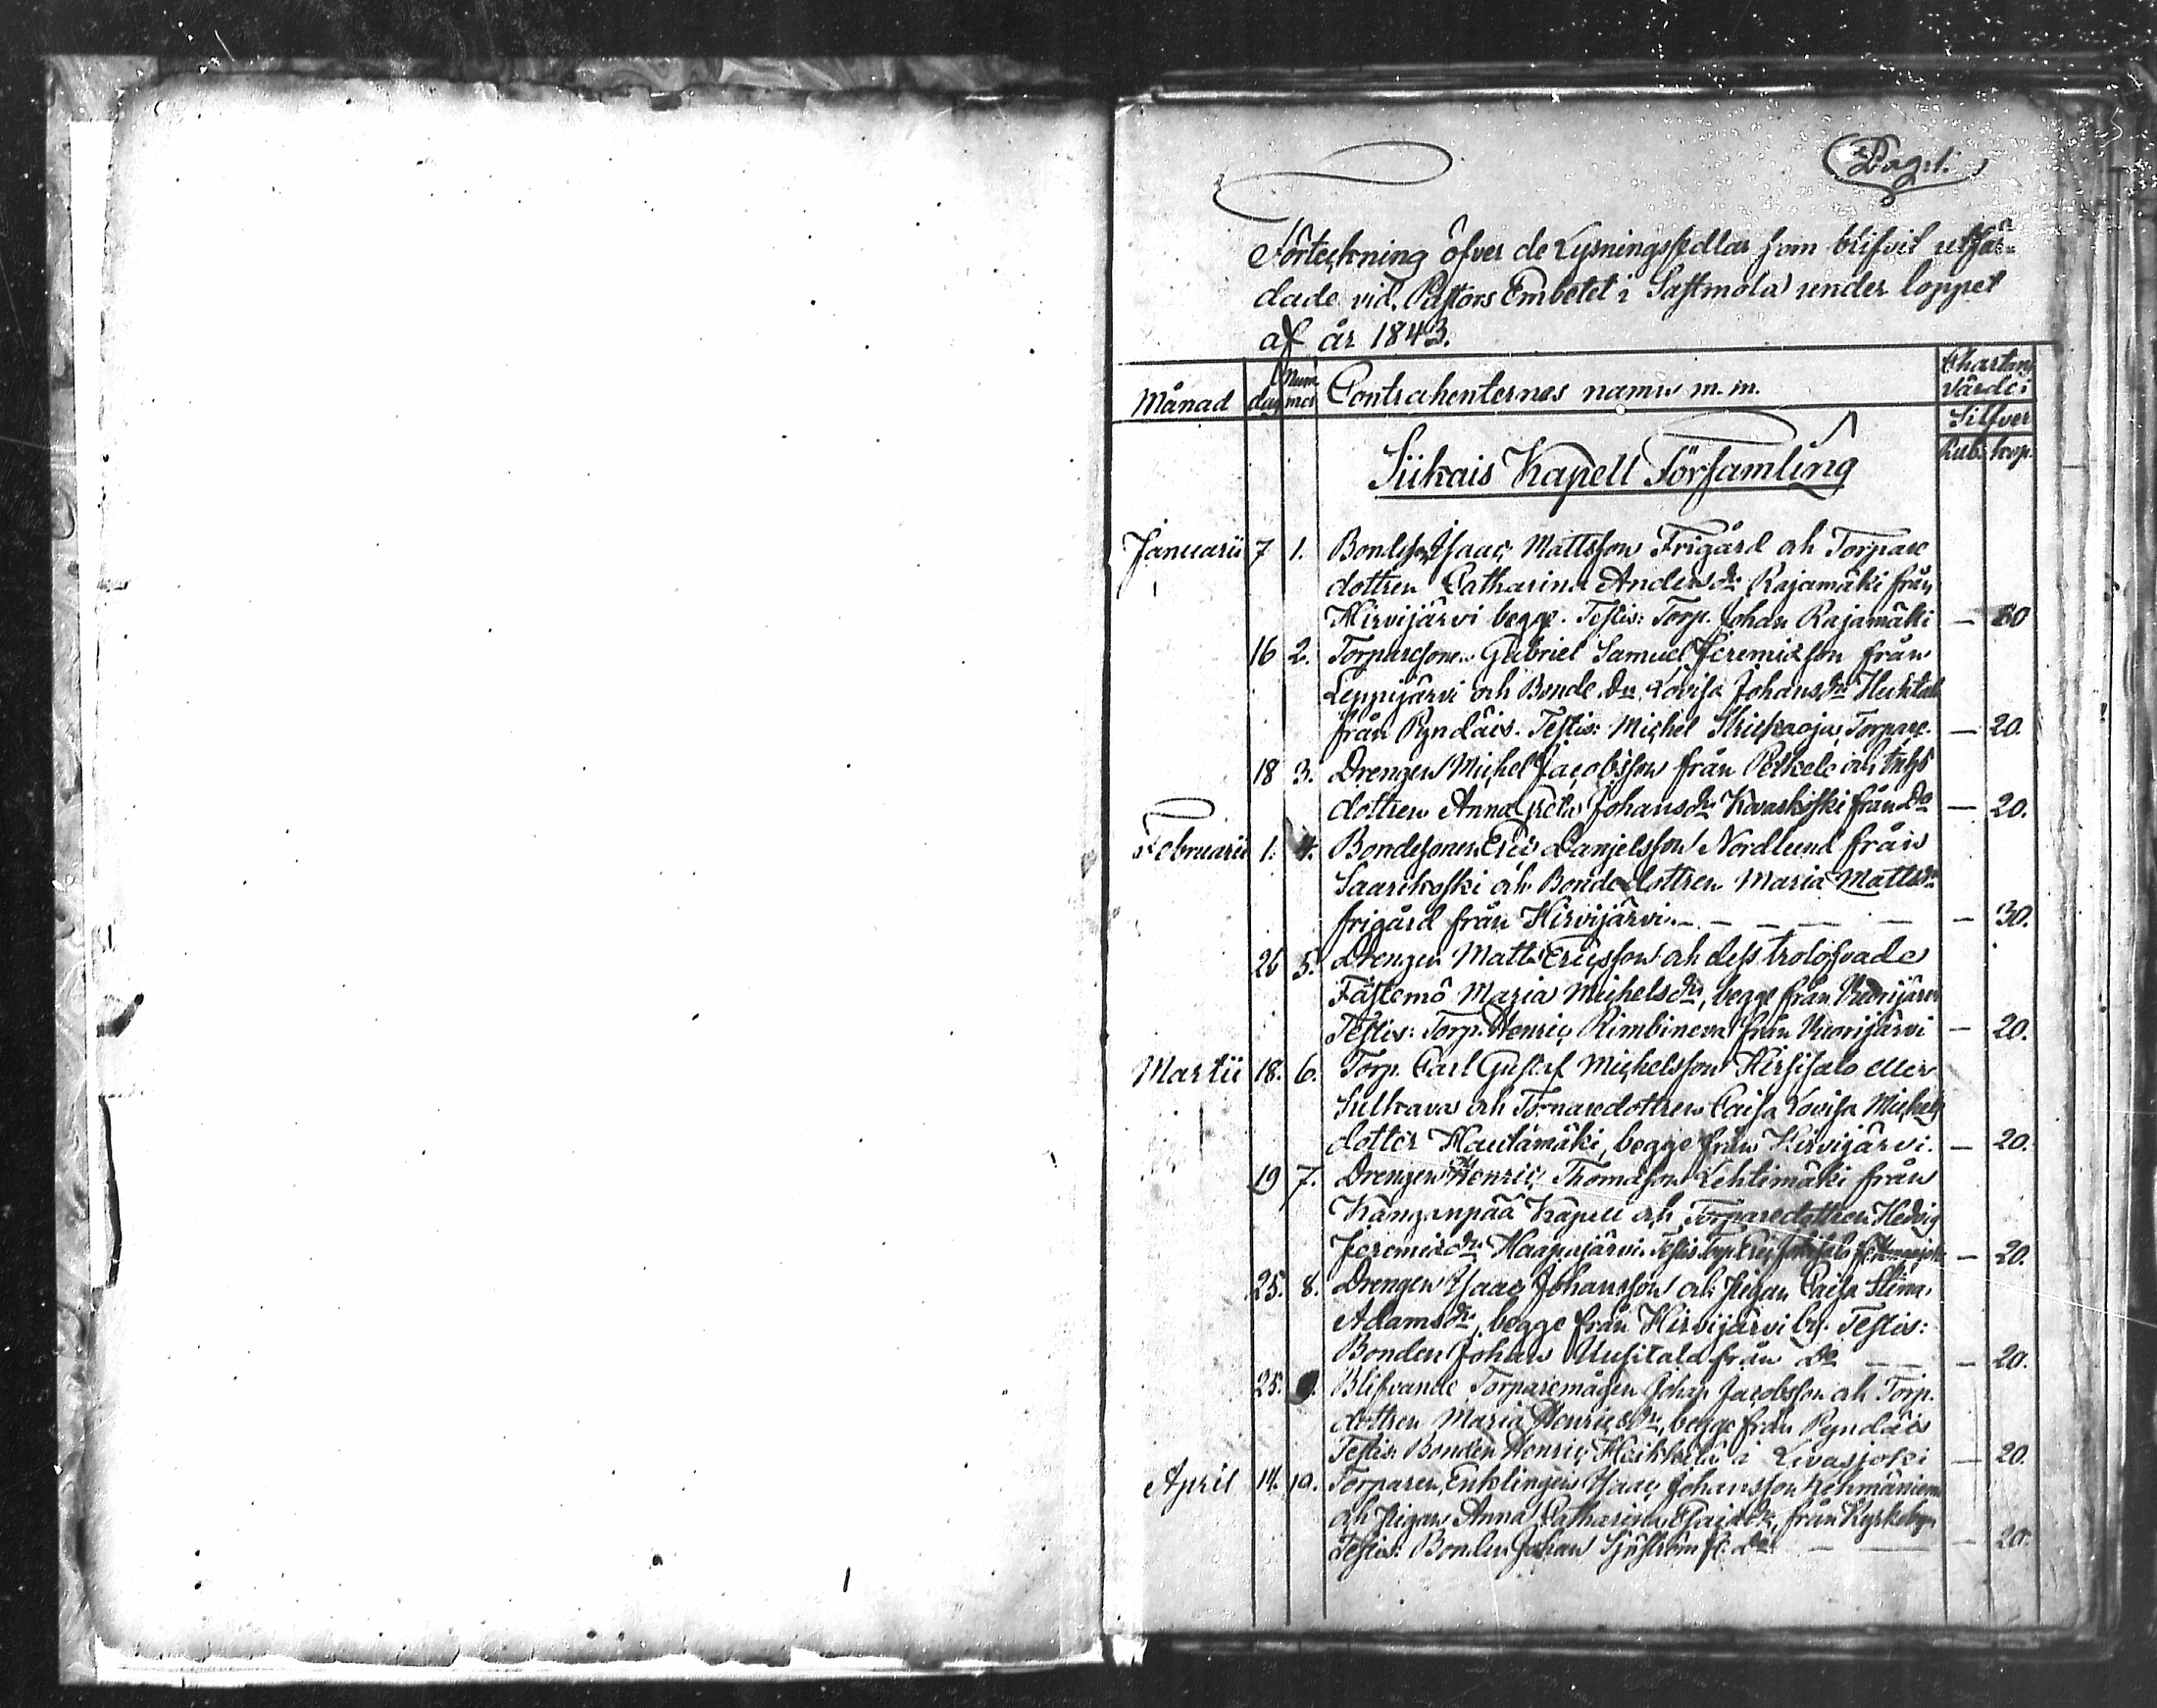 Pag: 1.
Förteckning öfver de Lysningssedlar som blifvit utfär-
dade vid Pastors Embetet i Sastmola under loppet
af år 1843.
Månad dag Num mer Contrahenternes namn m.m. Chartæ värde i
Silfver
Rub. kop.
Siikais Kapell Församling
Januarii 7 1. Bondeson Isaac Mattsson Frigård och Torpare
dottren Catharina Andersdr Rajamäki från
Hirvijärvi begge. Testis: Torp. Johan Rajamäki —
16 2. Torparesonen Gabriel Samuel Jeremiæson från
Leppijärvi och Bonde dn Lovisa Johansdr
från Pyndäis. Testis: Michel Torpare. — 20.
18 3. Drengen Michel Jacobsson från och Inhs
dottren Anna Greta Johansdr från Do — 20.
Februarii 1. 4. Bondesonen Eric Danjelsson Nordlund från
Saarikoski och Bondedottren Maria Mattsdr
frigård från Hirvijärvi. — — — — — — 30.
26 5. Drengen Matts Ericsson och dess trolofvade
Fästemö Maria Michelsdr, begge från Kuorijärvi
Testis: Torp. Henric från Kuorijärvi — 20.
Martii 18. 6. Torp. Carl Gustaf Michelsson Hirsisalo eller
Sulkava och Torparedottren Caisa Lovisa Michels
dotter Hautamäki, begge från Hirvijärvi. — 20.
19 7. Drengen Henric Thomasson Lehtimäki från
Kanganpää Kapell och Torparedottren Hedvig
Jeremiædr Haapajärvi. Testis Torp. Eric — 20.
25. 8. Drengen Isaac Johansson och pigan Caisa Stina
Adamsdr, begge från Hirvijärvi by. Testis:
Bonden Johan Uusitalo från Do — — — 20.
25. 9. Blifvande Torparemågen Johan Jacobsson och Torp.
dottren Maria Henricsdr, begge från Pyndäis
Testis: Bonden Henric Heikkilä i Levasjoki — 20.
April 14. 10. Torparen, Enklingen Isaac Johansson
och pigan Anna Catharina Esaiædr, från Kyrkobyn
Testis: Bonden Johan Sjöström fr. Do — — — 20.